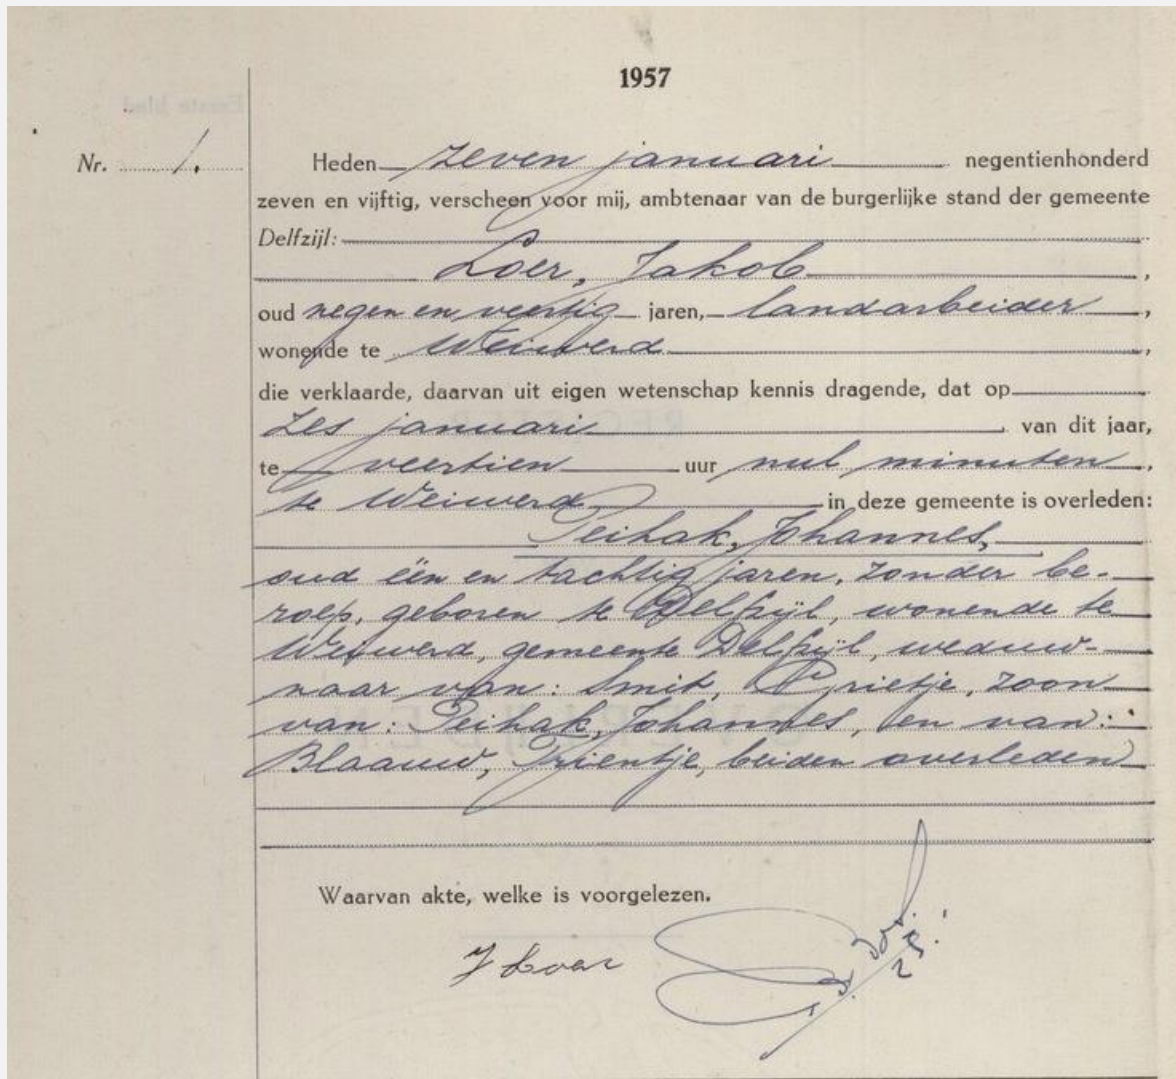 1957
Nr. 1.
Heden zeven januari negentienhonderd
zeven en vijftig, verscheen voor mij, ambtenaar van de burgerlijke stand der gemeente
Delfzijl:
Loer, Jakob,
oud negen en veertig jaren, landarbeider,
wonende te Weiwerd,
die verklaarde, daarvan uit eigen wetenschap kennis dragende, dat op
zes januari van dit jaar,
te veertien uur nul minuten,
te Weiwerd in deze gemeente is overleden:
Peihak, Johannes,
oud één en tachtig jaren, zonder be-
roep, geboren te Delfzijl, wonende te
Weiwerd, gemeente Delfzijl, weduw-
naar van: Smit, Grietje, zoon
van: Peihak, Johannes, en van:
Blaauw, Trientje, beiden overleden
Waarvan akte, welke is voorgelezen.
J Loer